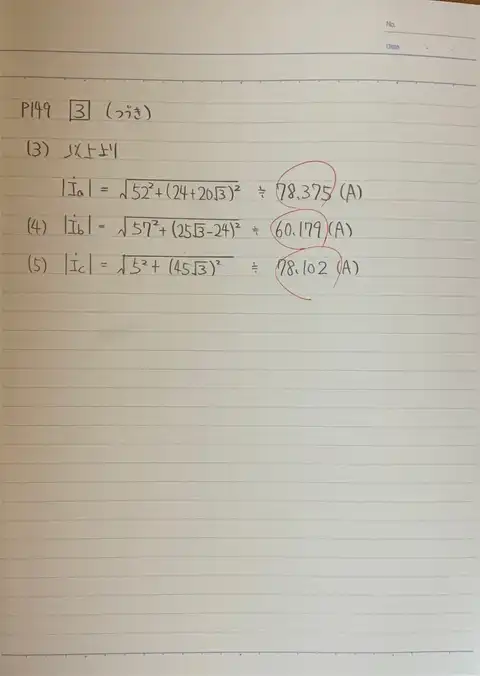 No.
Date
P149 3 (つづき)
(3) 以上より
|İa| = √52²+(24+20√3)² ≒ 78.375 (A)
(4) |İb| = √57²+(25√3-24)² ≒ 60.179 (A)
(5) |İc| = √5²+(45√3)² ≒ 78.102 (A)